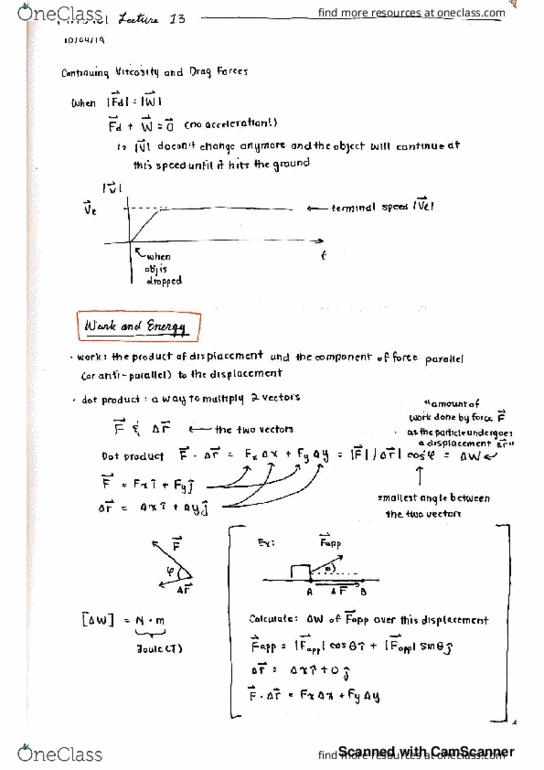 OneClass
find more resources at oneclass.com
Lecture 13
10/04/19
Continuing Viscosity and Drag Forces
When |Fd| = |W|
Fd + W = 0 (no acceleration!)
↳ |V| doesn't change anymore and the object will continue at
this speed until it hits the ground
|V|
Vt ← terminal speed |Vt|
t
when
obj is
dropped
Work and Energy
• work: the product of displacement and the component of force parallel
(or anti-parallel) to the displacement
• dot product: a way to multiply 2 vectors
"amount of
work done by force F
as the particle undergoes
a displacement Δr"
F & Δr ← the two vectors
Dot product F · Δr = FxΔx + FyΔy = |F||Δr| cosφ = ΔW
F = Fxî + Fyĵ
Δr = Δxî + Δyĵ
smallest angle between
the two vectors
F
φ
Δr
[ΔW] = N·m
Joule (J)
Ex: Fapp
θ
A Δr B
Calculate: ΔW of Fapp over this displacement
Fapp = |Fapp| cosθî + |Fapp| sinθĵ
Δr = Δxî + 0ĵ
F · Δr = FxΔx + FyΔy
Scanned with CamScanner
OneClass
find more resources at oneclass.com